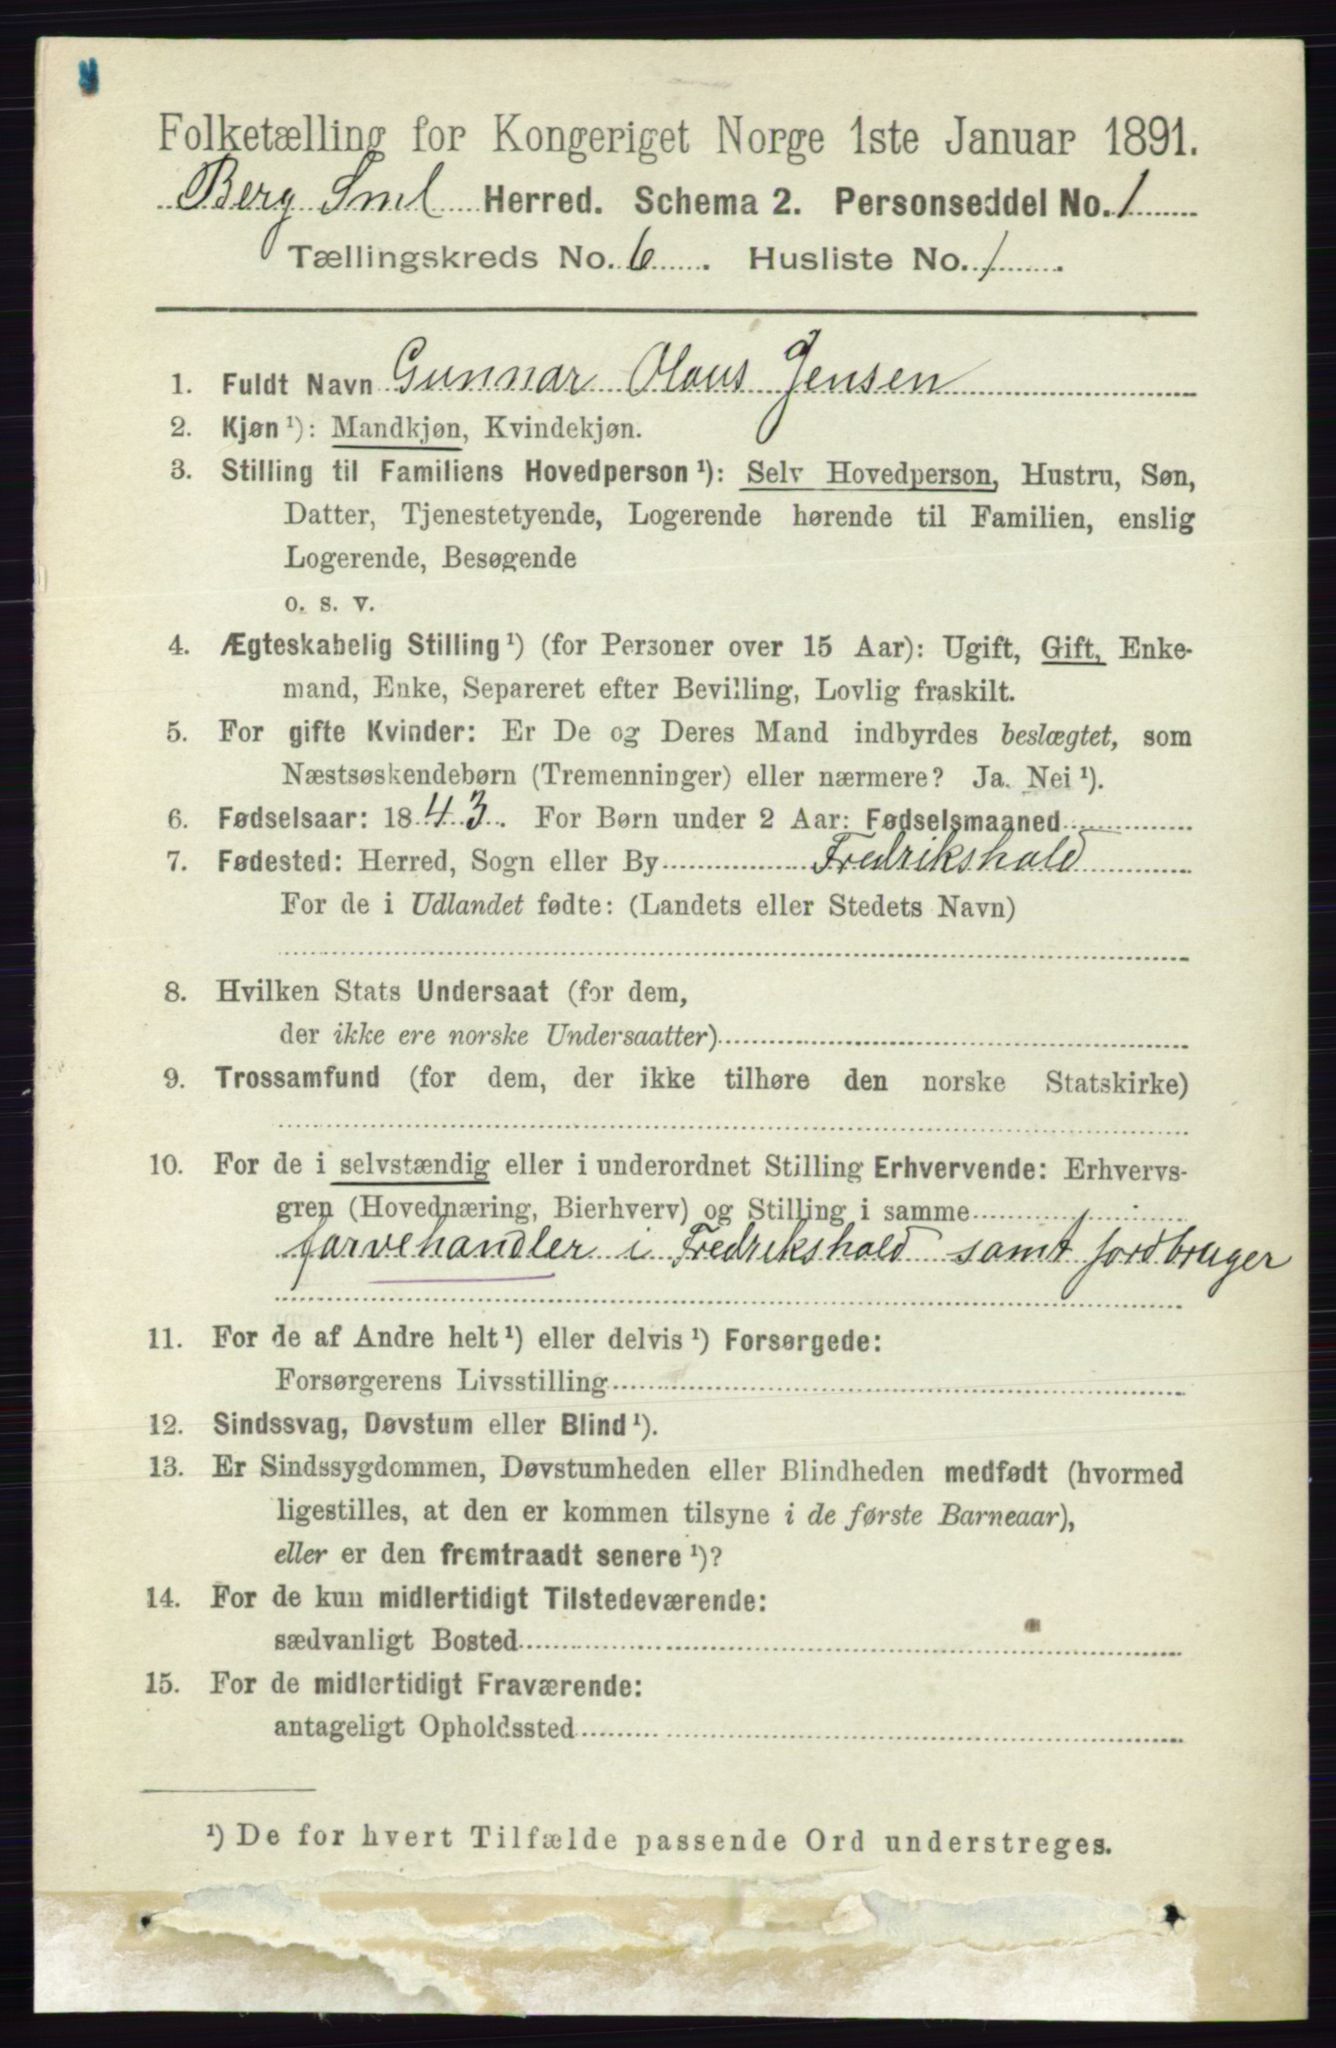 Folketælling for Kongeriget Norge 1ste Januar 1891.
Berg Sml Herred. Schema 2. Personseddel No. 1
Tællingskreds No. 6. Husliste No. 1.
1. Fuldt Navn Gunnar Olaus Jensen
2. Kjøn ¹): Mandkjøn, Kvindekjøn.
3. Stilling til Familiens Hovedperson ¹): Selv Hovedperson, Hustru, Søn,
Datter, Tjenestetyende, Logerende hørende til Familien, enslig
Logerende, Besøgende
o. s. v.
4. Ægteskabelig Stilling ¹) (for Personer over 15 Aar): Ugift, Gift, Enke-
mand, Enke, Separeret efter Bevilling, Lovlig fraskilt.
5. For gifte Kvinder: Er De og Deres Mand indbyrdes beslægtet, som
Næstsøskendebørn (Tremenninger) eller nærmere? Ja. Nei ¹).
6. Fødselsaar: 1843. For Børn under 2 Aar: Fødselsmaaned
7. Fødested: Herred, Sogn eller By Fredrikshald
For de i Udlandet fødte: (Landets eller Stedets Navn)
8. Hvilken Stats Undersaat (for dem,
der ikke ere norske Undersaatter)
9. Trossamfund (for dem, der ikke tilhøre den norske Statskirke)
10. For de i selvstændig eller i underordnet Stilling Erhvervende: Erhvervs-
gren (Hovednæring, Bierhverv) og Stilling i samme
farvehandler i Fredrikshald samt jordbruger
11. For de af Andre helt ¹) eller delvis ¹) Forsørgede:
Forsørgerens Livsstilling
12. Sindssvag, Døvstum eller Blind ¹).
13. Er Sindssygdommen, Døvstumheden eller Blindheden medfødt (hvormed
ligestilles, at den er kommen tilsyne i de første Barneaar),
eller er den fremtraadt senere ¹)?
14. For de kun midlertidigt Tilstedeværende:
sædvanligt Bosted
15. For de midlertidigt Fraværende:
antageligt Opholdssted
¹) De for hvert Tilfælde passende Ord understreges.